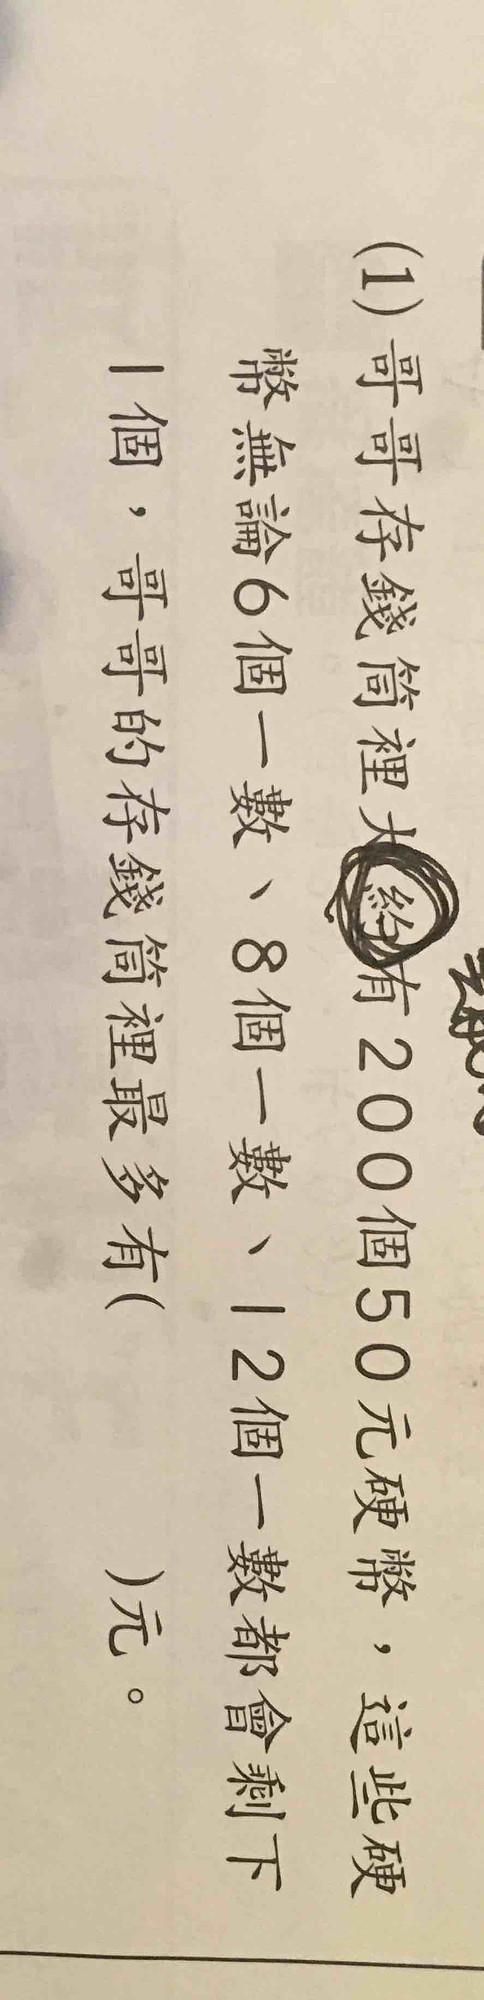 (1)哥哥存錢筒裡大約有200個50元硬幣，這些硬
幣無論6個一數、8個一數、12個一數都會剩下
1個，哥哥的存錢筒裡最多有(　　)元。